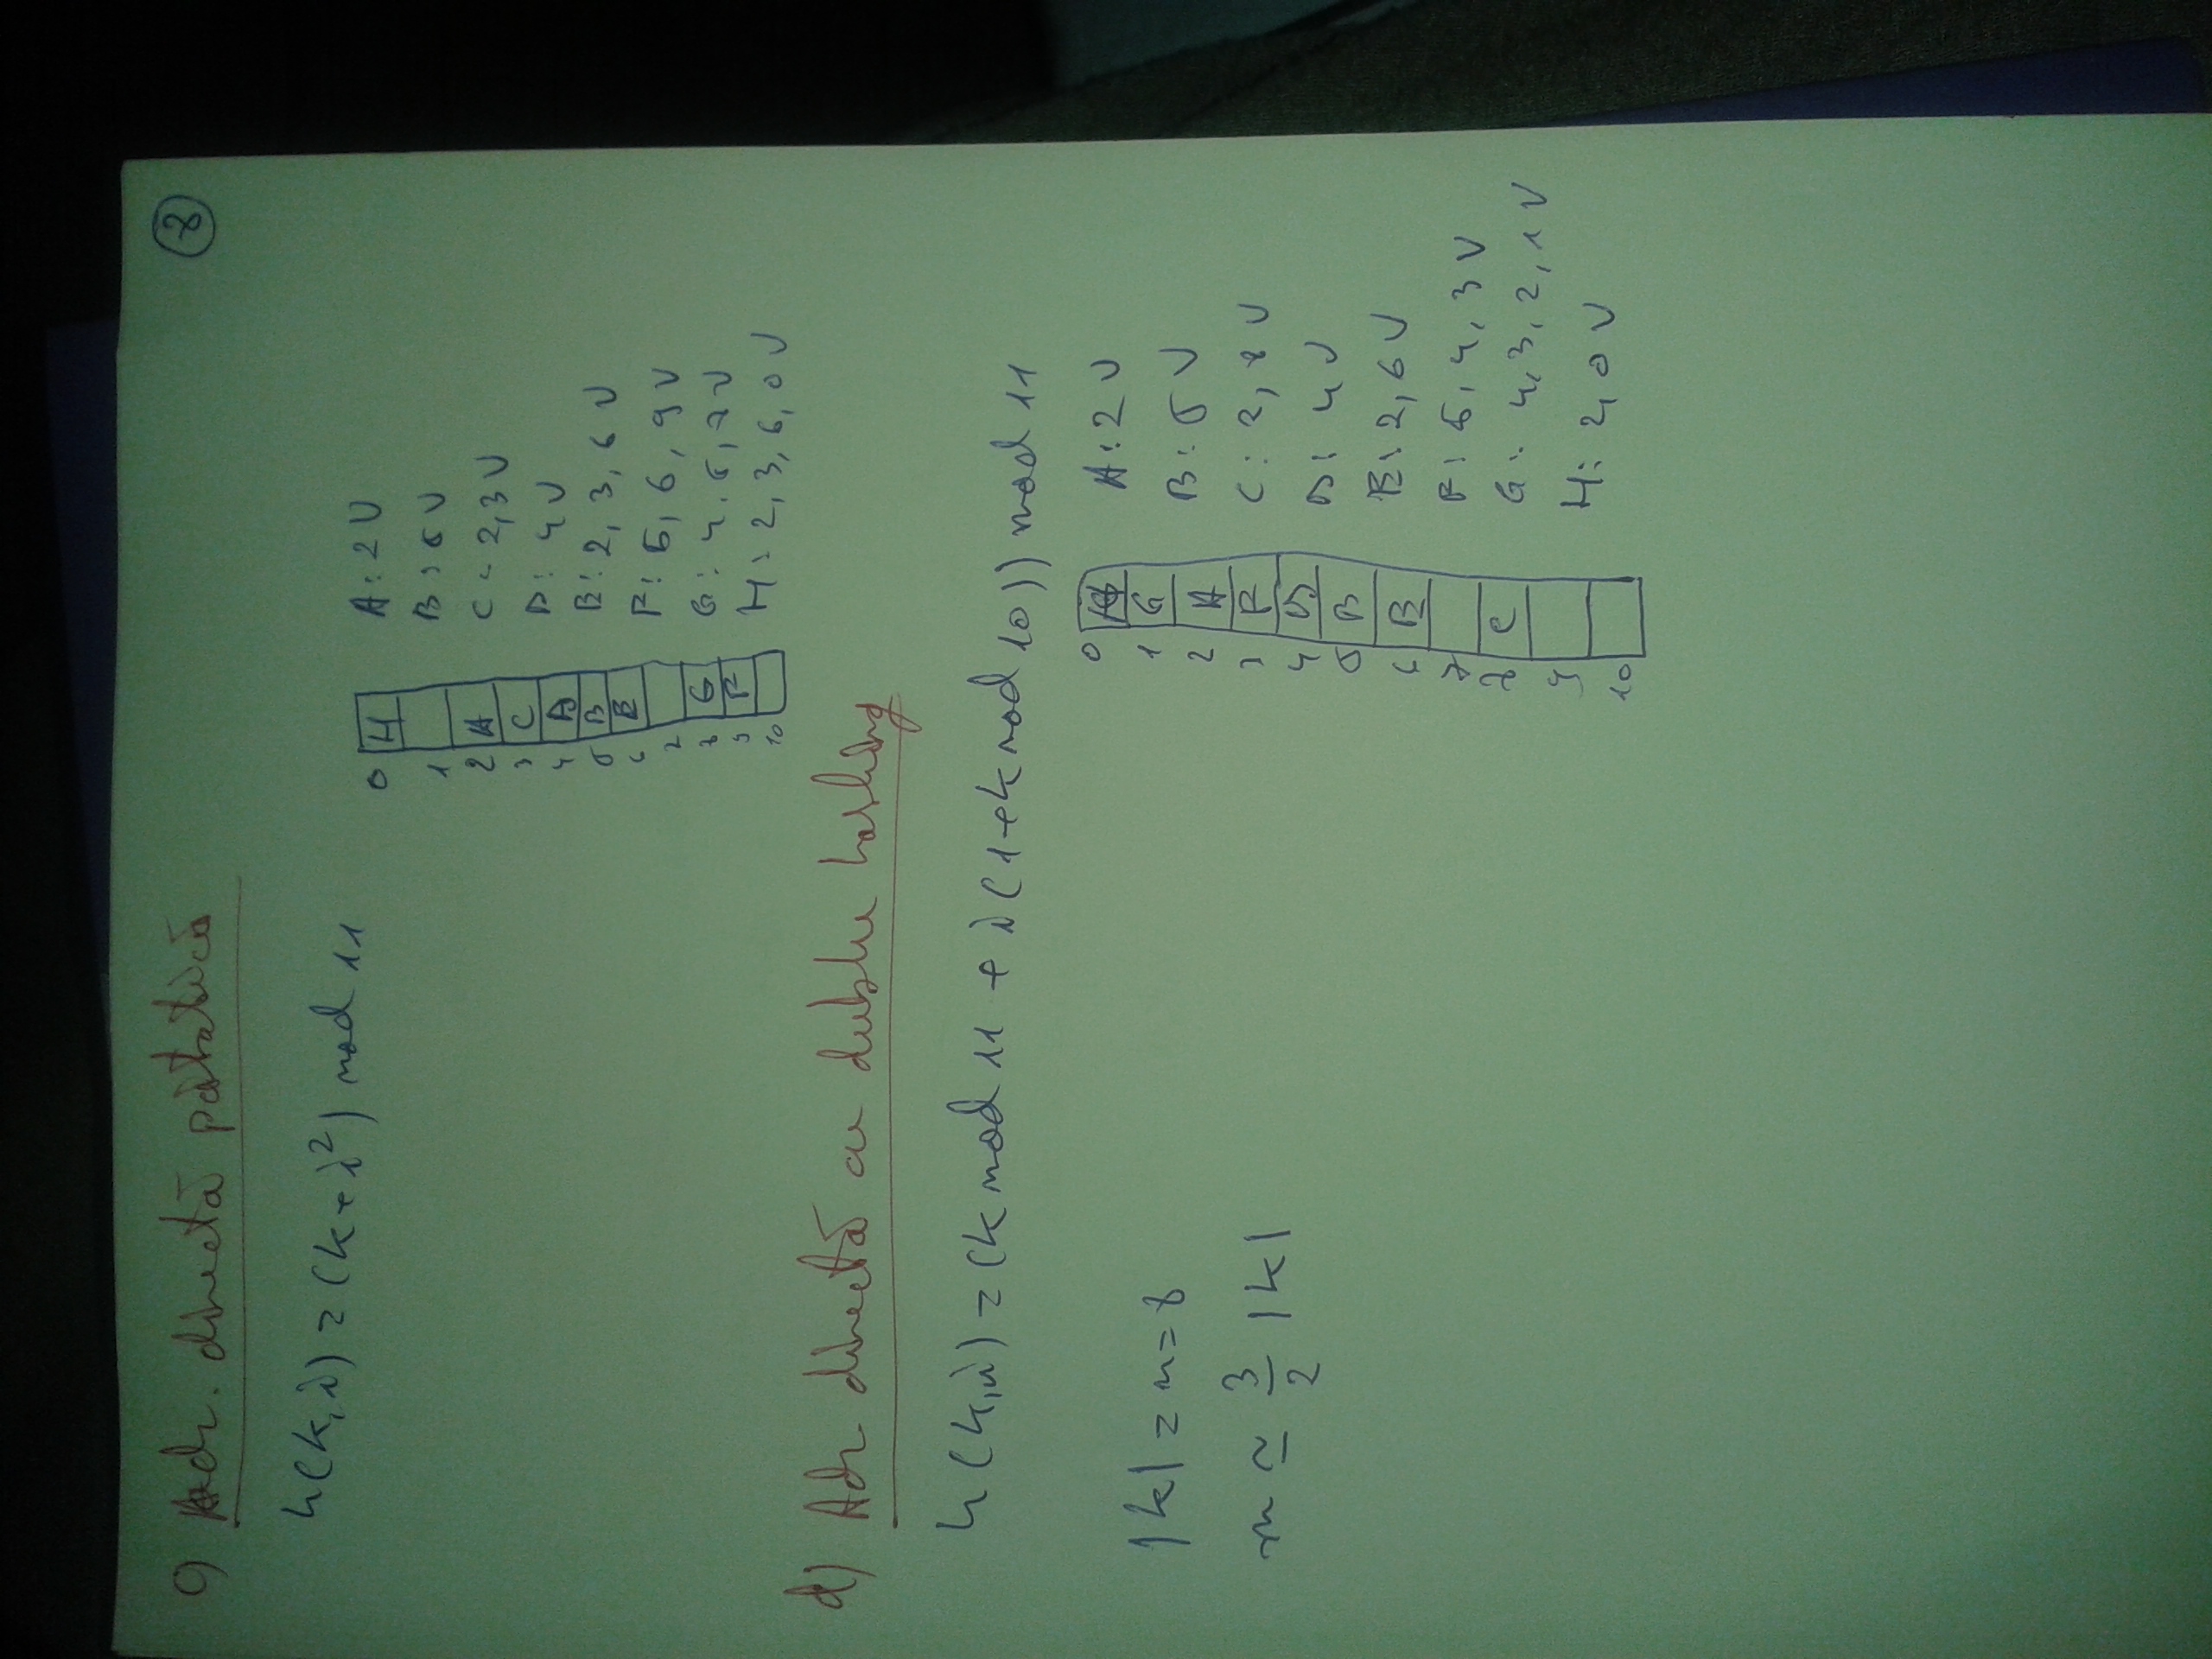 8
c) Adr. directă pătratică
h(k,i) = (k+i²) mod 11
0 H
1
2 A
3 C
4 D
5 B
6 E
7
8 G
9 F
10
A: 2 V
B: 5 V
C: 2,3 V
D: 4 V
E: 2, 3, 6 V
F: 5, 6, 9 V
G: 4, 5, V
H: 2, 3, 6, 0 V
d) Adr directă cu dublu hashing
h(k,i) = (k mod 11 + i(1+k mod 10)) mod 11
|k| = n = 8
m ≃ 3/2 |k|
0 H
1 G
2 A
3 F
4 D
5 B
6 E
7
8 C
9
10
A: 2 V
B: 5 V
C: 2, 8 V
D: 4 V
E: 2, 6 V
F: 5, 4, 3 V
G: 4, 3, 2, 1 V
H: 2, 0 V